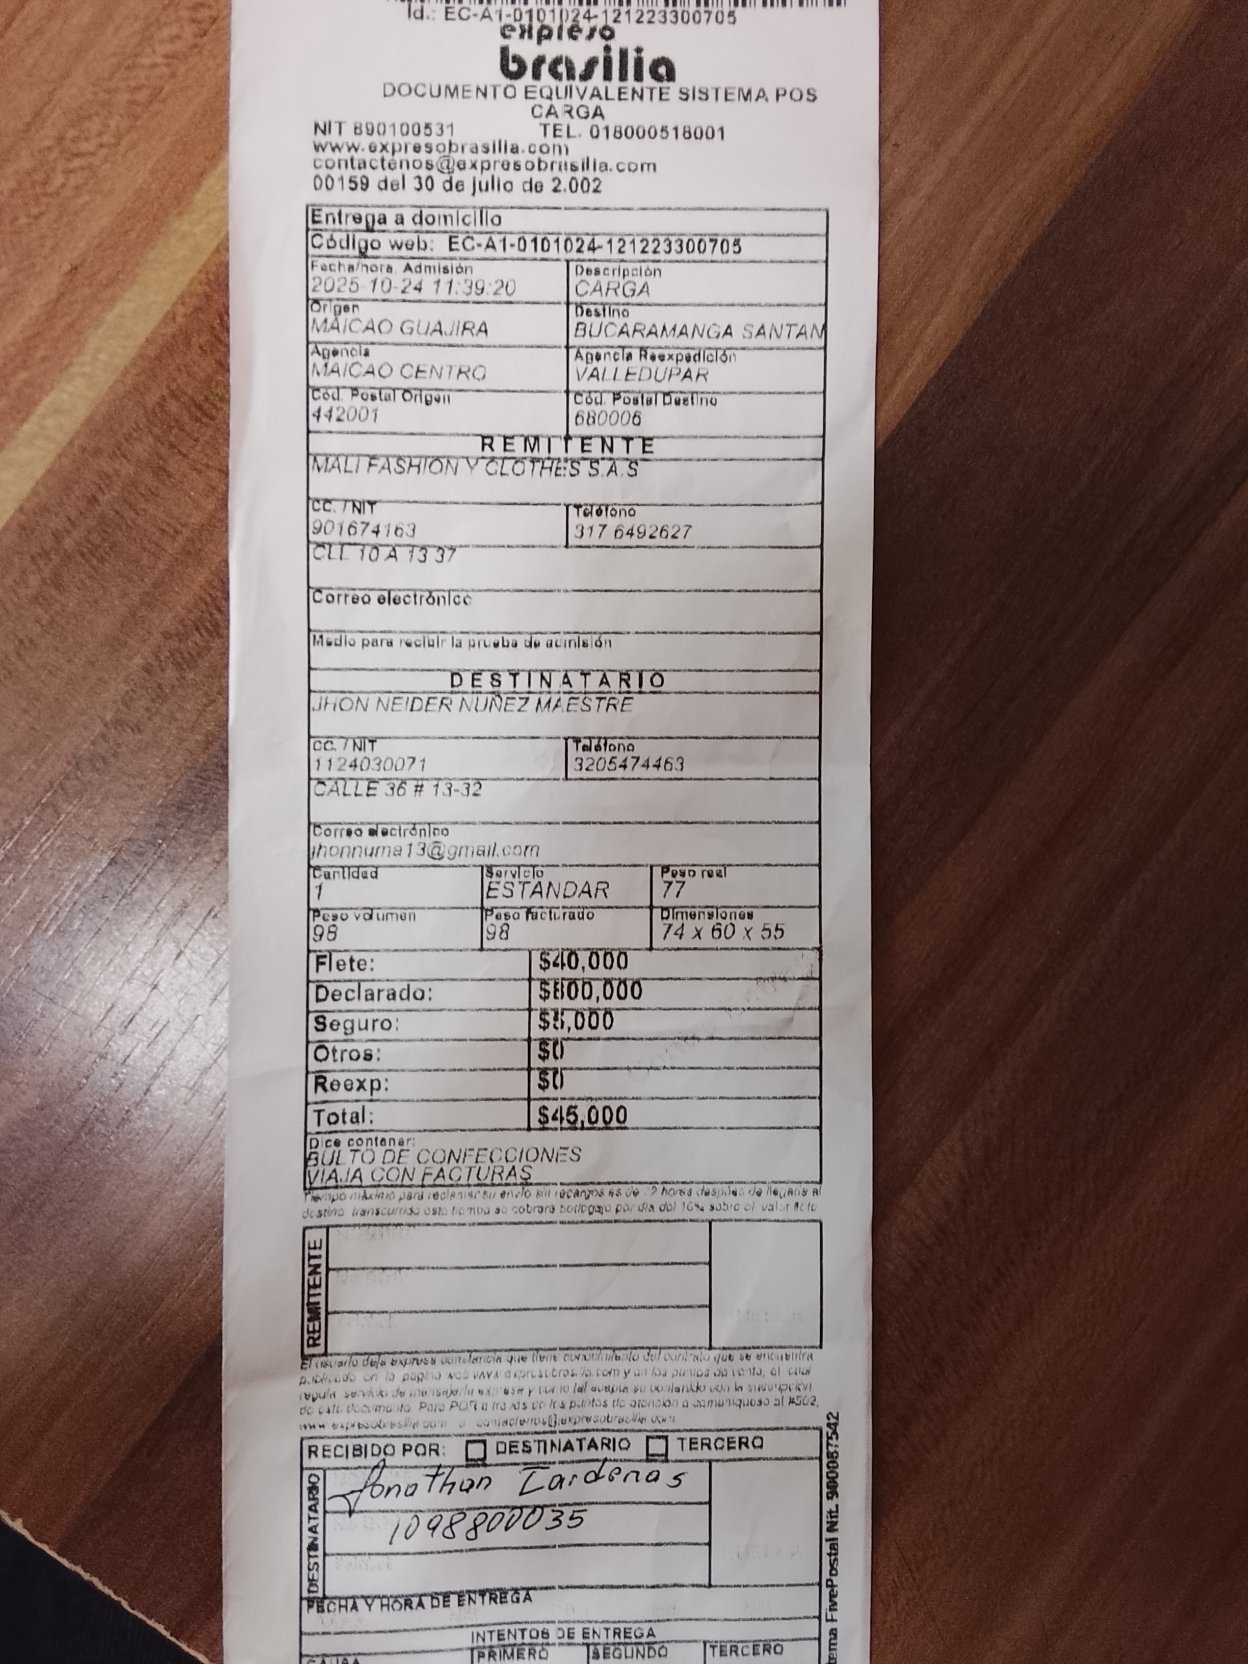 Id.: EC-A1-0101024-121223300705
expreso
brasilia
DOCUMENTO EQUIVALENTE SISTEMA POS
CARGA
NIT 890100531 TEL. 018000518001
www.expresobrasilia.com
contactenos@expresobrasilia.com
00159 del 30 de julio de 2.002
Entrega a domicilio
Código web: EC-A1-0101024-121223300705
Fecha/hora Admisión Descripción
2025-10-24 11:39:20 CARGA
Origen Destino
MAICAO GUAJIRA BUCARAMANGA SANTAN
Agencia Agencia Reexpedición
MAICAO CENTRO VALLEDUPAR
Cód. Postal Origen Cód. Postal Destino
442001 680006
REMITENTE
MALI FASHION Y CLOTHES S.A.S
CC. / NIT Teléfono
901674163 317 6492627
CLL 10 A 13 37
Correo electrónico
Medio para recibir la prueba de admisión
DESTINATARIO
JHON NEIDER NUÑEZ MAESTRE
CC. / NIT Teléfono
1124030071 3205474463
CALLE 36 # 13-32
Correo electrónico
jhonnuma13@gmail.com
Cantidad Servicio Peso real
1 ESTANDAR 77
Peso volumen Peso facturado Dimensiones
98 98 74 x 60 x 55
Flete: $40,000
Declarado: $800,000
Seguro: $5,000
Otros: $0
Reexp: $0
Total: $45,000
Dice contener:
BULTO DE CONFECCIONES
VIAJA CON FACTURAS
Tiempo máximo para reclamar su envío sin recargos es de horas después de llegada al
destino transcurrido este tiempo se cobrara bodegaje por día del 10% sobre el valor flete
REMITENTE
El usuario deja expresa constancia que tiene conocimiento del contrato que se encuentra
publicado en la página web www.expresobrasilia.com y en los puntos de venta, el cual
regula servicio de mensajería expresa y como tal acepta su contenido con la suscripción
de este documento. Para PQR a través de los puntos de atención o comuníquese al #502,
www.expresobrasilia.com o contactenos@expresobrasilia.com
RECIBIDO POR: DESTINATARIO TERCERO
DESTINATARIO
Jonathan Cardenas
1098800035
FECHA Y HORA DE ENTREGA
INTENTOS DE ENTREGA
CAUSA PRIMERO SEGUNDO TERCERO
FivePostal Nit. 900087542